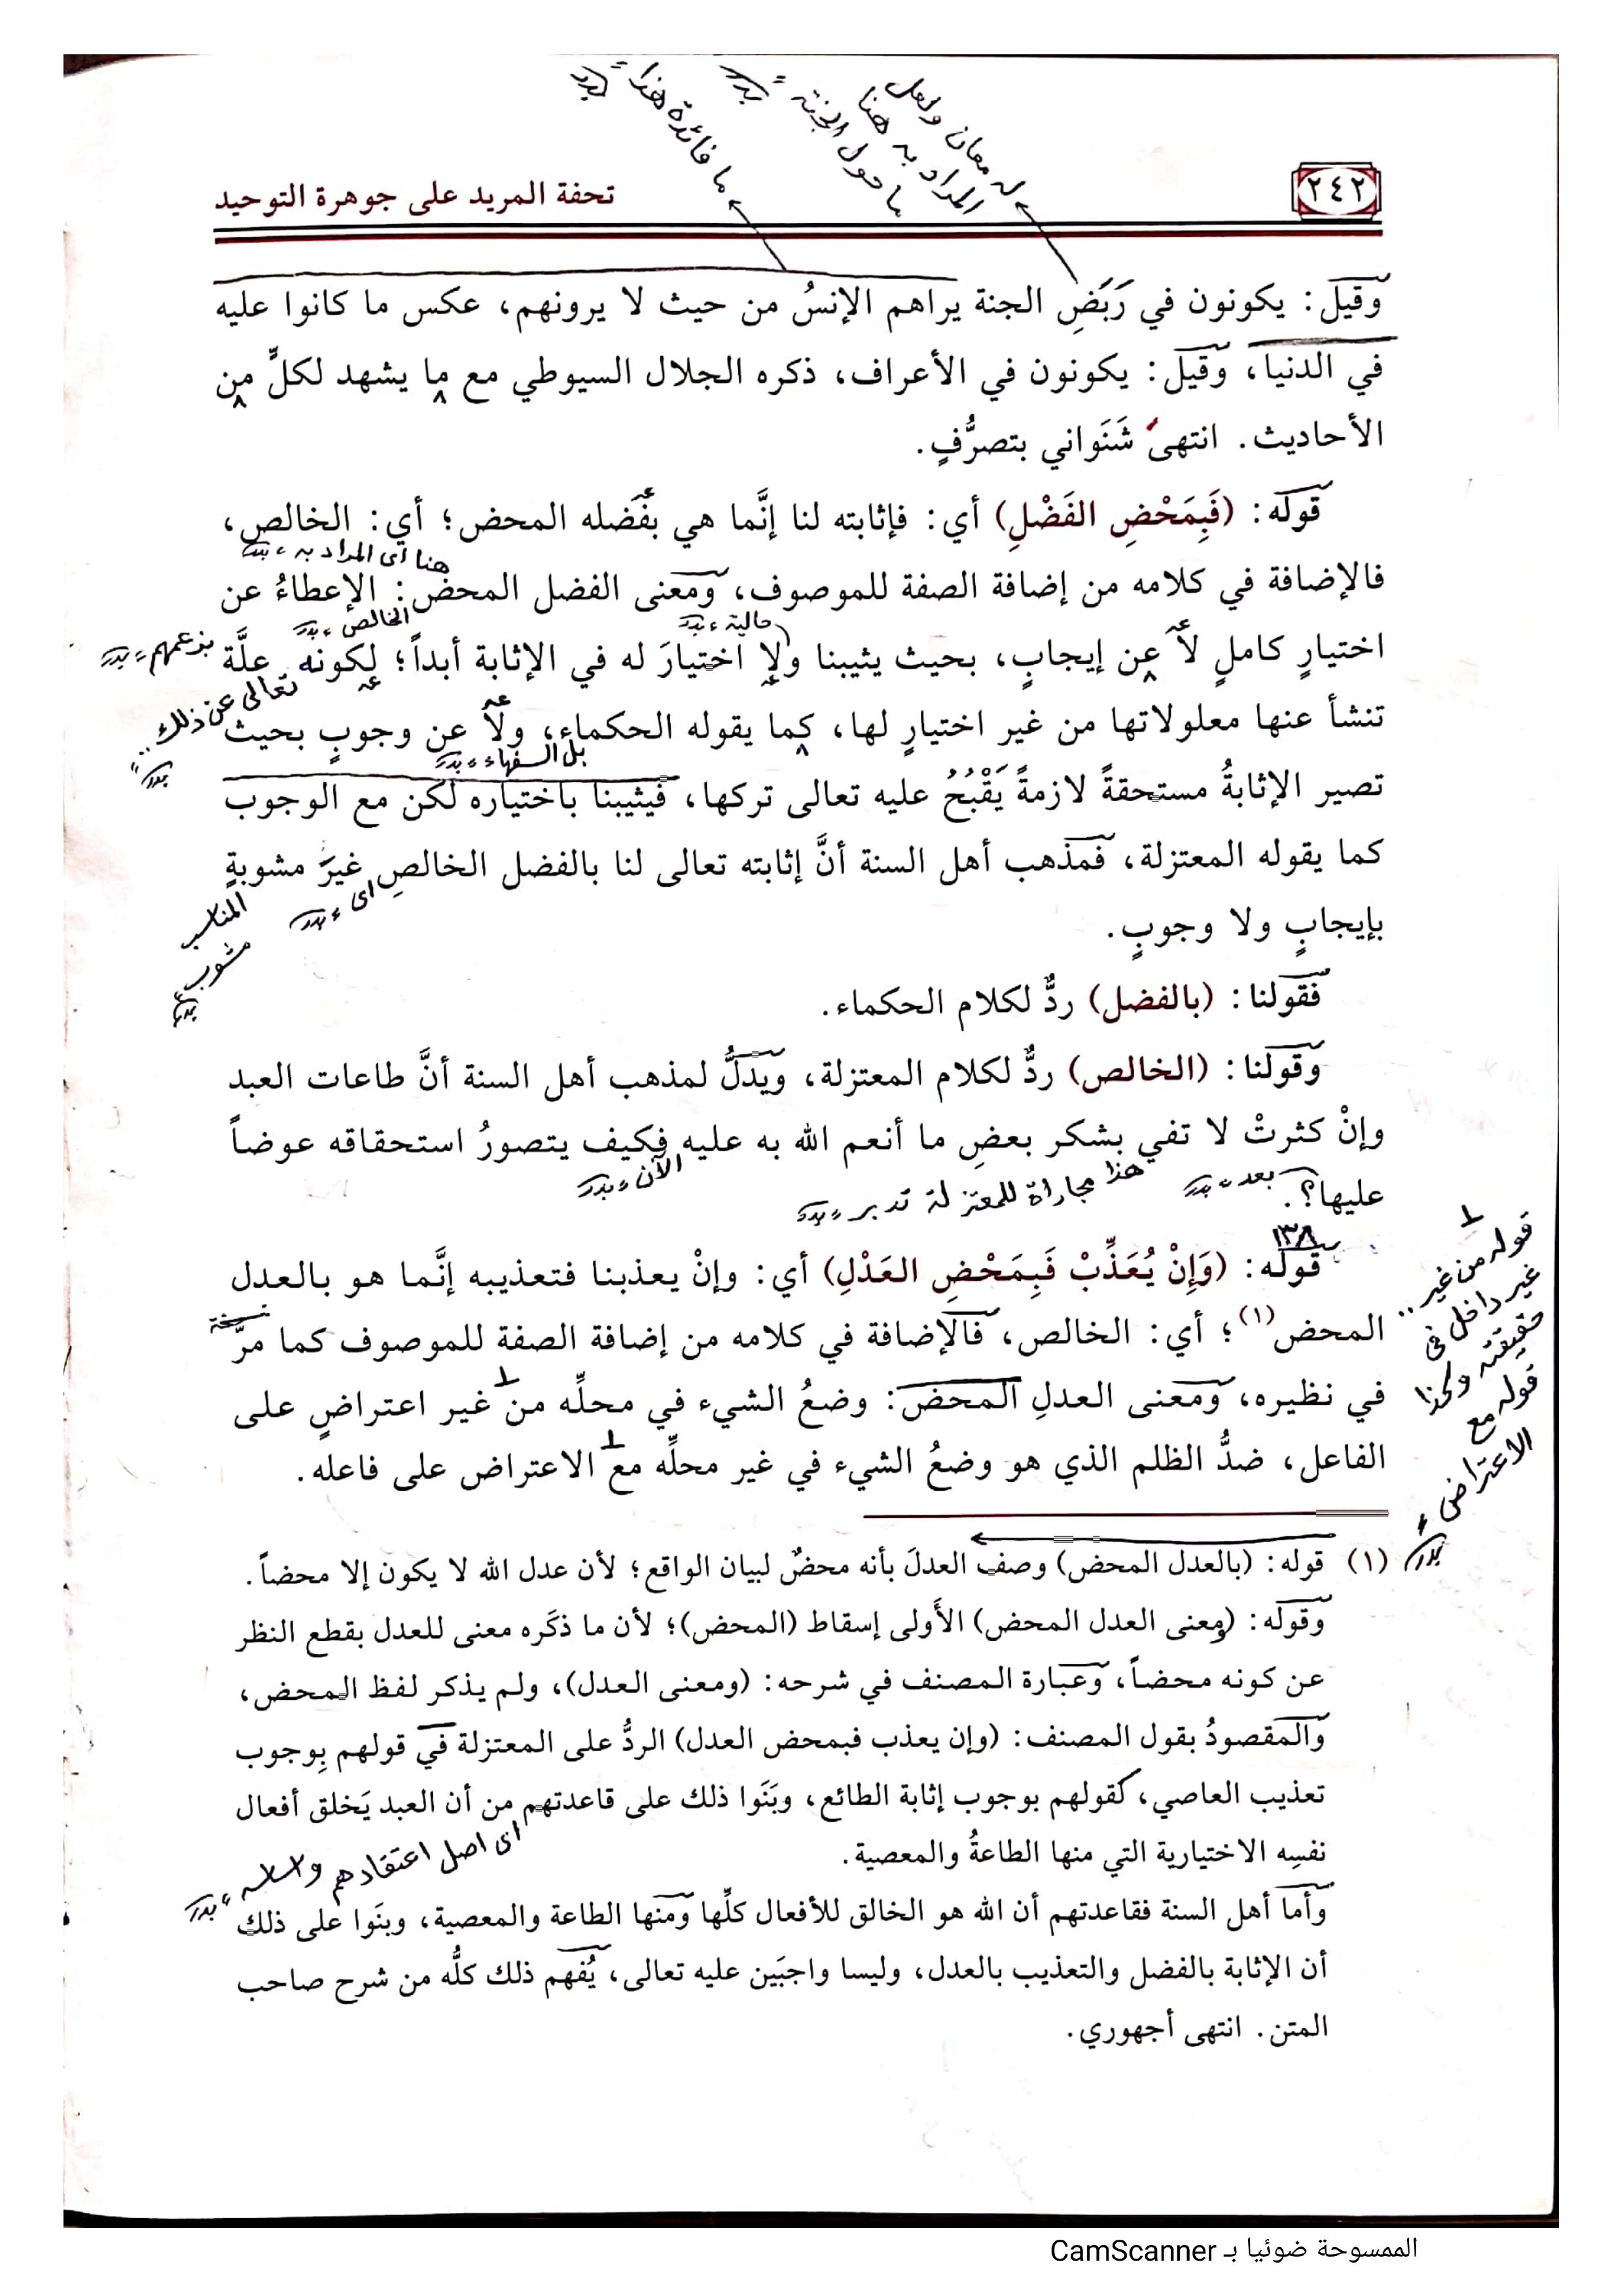 له معان ولعل
المراد به هنا
ما حول الجنة
ما فائدة هذا
٢٤٢
تحفة المريد على جوهرة التوحيد
وقيل: يكونون في رَبَضِ الجنة يراهم الإنسُ من حيث لا يرونهم، عكس ما كانوا عليه
في الدنيا، وقيل: يكونون في الأعراف، ذكره الجلال السيوطي مع ما يشهد لكلٍّ من
الأحاديث. انتهى شَنَواني بتصرُّفٍ.
قوله: (فَبِمَحْضِ الفَضْلِ) أي: فإثابته لنا إنَّما هي بفَضله المحض؛ أي: الخالص،
هنا اى المراد به بدر
فالإضافة في كلامه من إضافة الصفة للموصوف، ومعنى الفضل المحض: الإعطاءُ عن
الخالص بدر
حالية بدر
اختيارٍ كاملٍ لا عن إيجابٍ، بحيث يثيبنا ولا اختيارَ له في الإثابة أبداً؛ لكونه علَّة
بزعمهم بدر
تعالى عن ذلك
بدر
تنشأ عنها معلولاتها من غير اختيارٍ لها، كما يقوله الحكماء، ولا عن وجوبٍ بحيث
بل السفهاء بدر
تصير الإثابةُ مستحقةً لازمةً يَقْبُحُ عليه تعالى تركها، فيثيبنا باختياره لكن مع الوجوب
كما يقوله المعتزلة، فمذهب أهل السنة أنَّ إثابته تعالى لنا بالفضل الخالصِ غيرَ مشوبةٍ
اى بدر
المناسب
مشوب
بدر
بإيجابٍ ولا وجوبٍ.
فقولنا: (بالفضل) ردٌّ لكلام الحكماء.
وقولنا: (الخالص) ردٌّ لكلام المعتزلة، ويَدلُّ لمذهب أهل السنة أنَّ طاعات العبد
وإنْ كثرتْ لا تفي بشكر بعضِ ما أنعم الله به عليه فكيف يتصورُ استحقاقه عوضاً
الآن بدر
عليها؟.
بعد بدر
هذا مجاراة للمعتزلة تدبر بدر
١٣٨
قوله: (وَإِنْ يُعَذِّبْ فَبِمَحْضِ العَدْلِ) أي: وإنْ يعذبنا فتعذيبه إنَّما هو بالعدل
المحض(١)؛ أي: الخالص، فالإضافة في كلامه من إضافة الصفة للموصوف كما مرَّ
نسخة
في نظيره، ومعنى العدلِ المحض: وضعُ الشيء في محلِّه من غير اعتراضٍ على
الفاعل، ضدُّ الظلم الذي هو وضعُ الشيء في غير محلِّه مع الاعتراض على فاعله.
قوله من غير..
غير داخل فى
حقيقته وكذا
قوله مع
الاعتراض
بدر
(١) قوله: (بالعدل المحض) وصف العدلَ بأنه محضٌ لبيان الواقع؛ لأن عدل الله لا يكون إلا محضاً.
وقوله: (ومعنى العدل المحض) الأَولى إسقاط (المحض)؛ لأن ما ذكَره معنى للعدل بقطع النظر
عن كونه محضاً، وعبارة المصنف في شرحه: (ومعنى العدل)، ولم يذكر لفظ المحض،
والمقصودُ بقول المصنف: (وإن يعذب فبمحض العدل) الردُّ على المعتزلة في قولهم بِوجوب
تعذيب العاصي، كقولهم بوجوب إثابة الطائع، وبَنَوا ذلك على قاعدتهم من أن العبد يَخلق أفعال
نفسِه الاختيارية التي منها الطاعةُ والمعصية.
اى اصل اعتقادهم واساسه بدر
وأما أهل السنة فقاعدتهم أن الله هو الخالق للأفعال كلِّها ومنها الطاعة والمعصية، وبنَوا على ذلك
أن الإثابة بالفضل والتعذيب بالعدل، وليسا واجبَين عليه تعالى، يُفهَم ذلك كلُّه من شرح صاحب
المتن. انتهى أجهوري.
الممسوحة ضوئيا بـ CamScanner